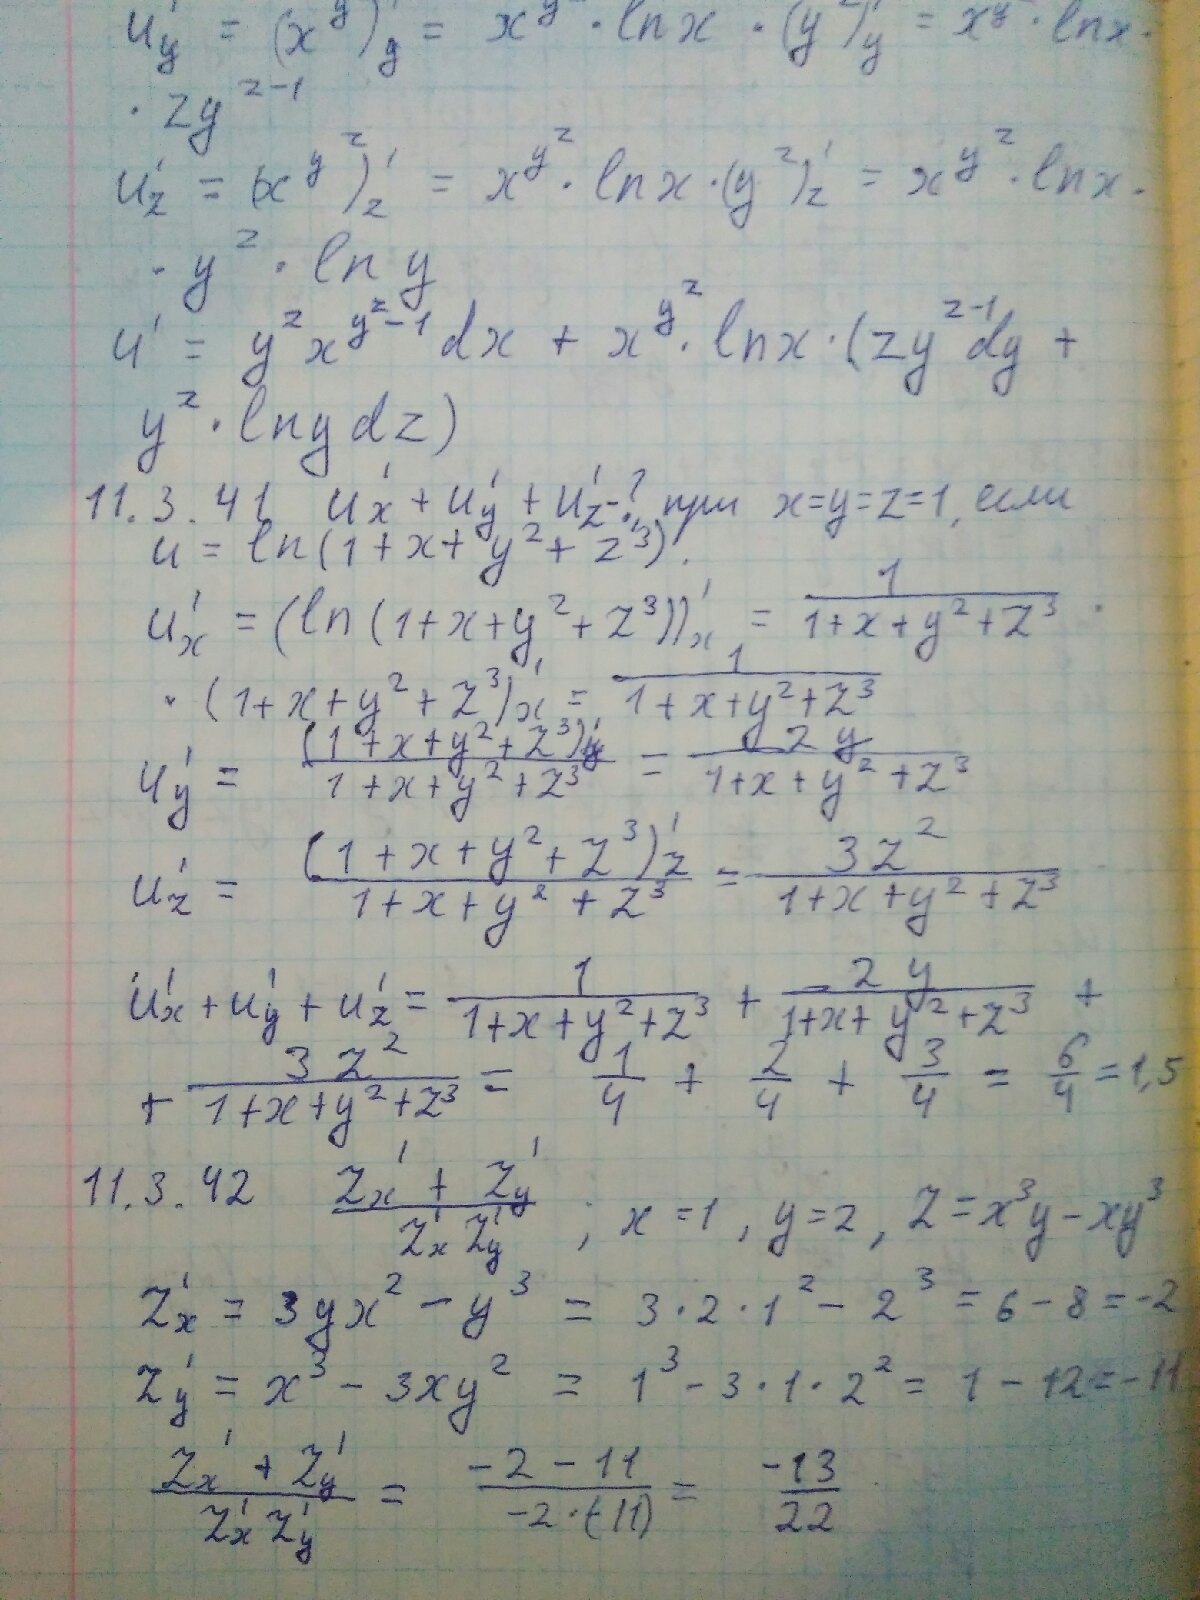 u'_y = (x^y)'_y = x^{y^z} · ln x · (y^z)'_y = x^{y^z} · ln x ·
· zy^{z-1}
u'_z = (x^{y^z})'_z = x^{y^z} · ln x · (y^z)'_z = x^{y^z} · ln x ·
· y^z · ln y
u' = y^z x^{y^z-1} dx + x^{y^z} · ln x · (zy^{z-1} dy +
y^z · ln y dz)
11.3.41 u'_x + u'_y + u'_z -?, при x=y=z=1, если
u = ln(1+x+y^2+z^3).
u'_x = (ln(1+x+y^2+z^3))'_x = 1/(1+x+y^2+z^3) ·
· (1+x+y^2+z^3)'_x = 1/(1+x+y^2+z^3)
u'_y = (1+x+y^2+z^3)'_y/(1+x+y^2+z^3) = 2y/(1+x+y^2+z^3)
u'_z = (1+x+y^2+z^3)'_z/(1+x+y^2+z^3) = 3z^2/(1+x+y^2+z^3)
u'_x + u'_y + u'_z = 1/(1+x+y^2+z^3) + 2y/(1+x+y^2+z^3) +
+ 3z^2/(1+x+y^2+z^3) = 1/4 + 2/4 + 3/4 = 6/4 = 1,5
11.3.42 (z'_x + z'_y)/(z'_x z'_y) ; x=1, y=2, z=x^3y-xy^3
z'_x = 3yx^2 - y^3 = 3·2·1^2 - 2^3 = 6-8 = -2
z'_y = x^3 - 3xy^2 = 1^3 - 3·1·2^2 = 1-12 = -11
(z'_x + z'_y)/(z'_x z'_y) = (-2-11)/(-2·(-11)) = -13/22